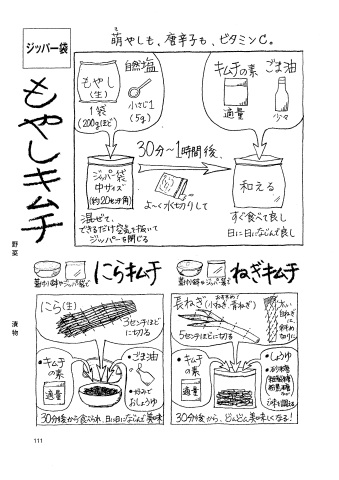 ジッパー袋
もやしキムチ
萌やしも、唐辛子も、ビタミンC。
もやし
(生)
1袋
(200gほど)
自然塩
小さじ1
(5g)
キムチの素
適量
ごま油
少々
30分〜1時間後、
ジッパー袋
中サイズ
(約20センチ角)
よ〜く水切りして
和える
混ぜて、
できるだけ空気を抜いて
ジッパーを閉じる
すぐ食べて良し
日に日になじんで良し
野菜
漬物
蓋付小鉢やジッパー袋で
にらキムチ
にら(生)
3センチほど
に切る
キムチ
の素
適量
ごま油
好みで
おしょうゆ
30分後から食べられ、日に日になじんで美味
蓋付小鉢やジッパー袋で
ねぎキムチ
長ねぎ
おすすめ!
(小ねぎ・青ねぎ)
5センチほどに切る
太い
白ねぎ
は
斜め
切りに
キムチ
の素
適量
しょうゆ
砂糖
で味を調える
30分後から、どんどん美味しくなる!
111